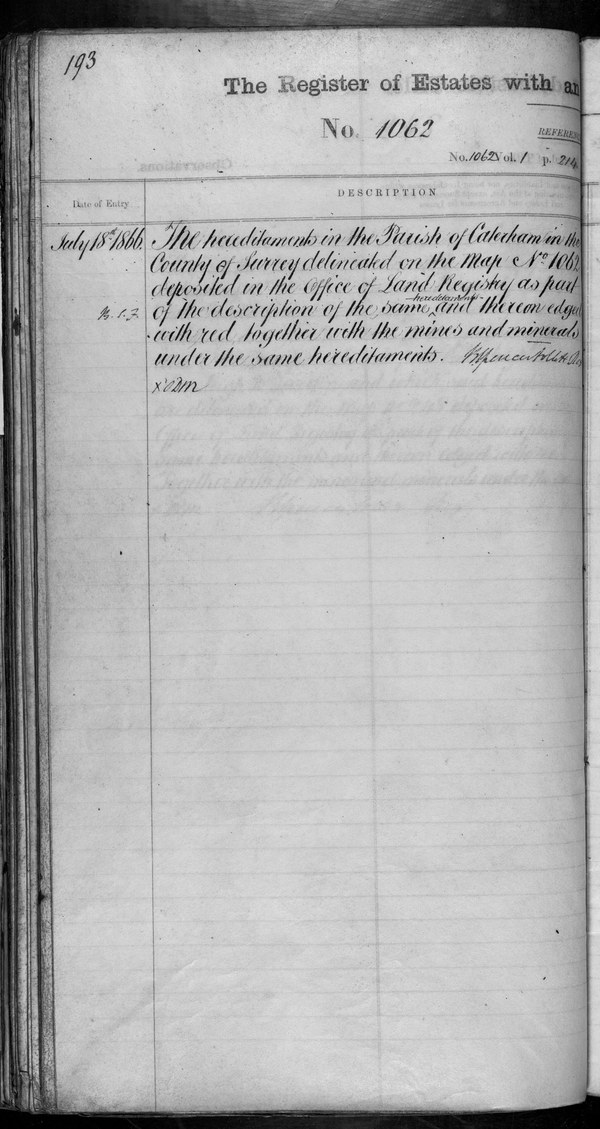 193
The Register of Estates with an
No. 1062
REFERENC
No. 1062 Vol. 1 p. 214
Observations.
DESCRIPTION
Date of Entry
July 18th 1866. The hereditaments in the Parish of Caterham in the
County of Surrey delineated on the Map No. 1062
deposited in the Office of Land Registry as part
hereditaments
B. S. F. of the description of the same and thereon edged
with red together with the mines and minerals
under the same hereditaments.